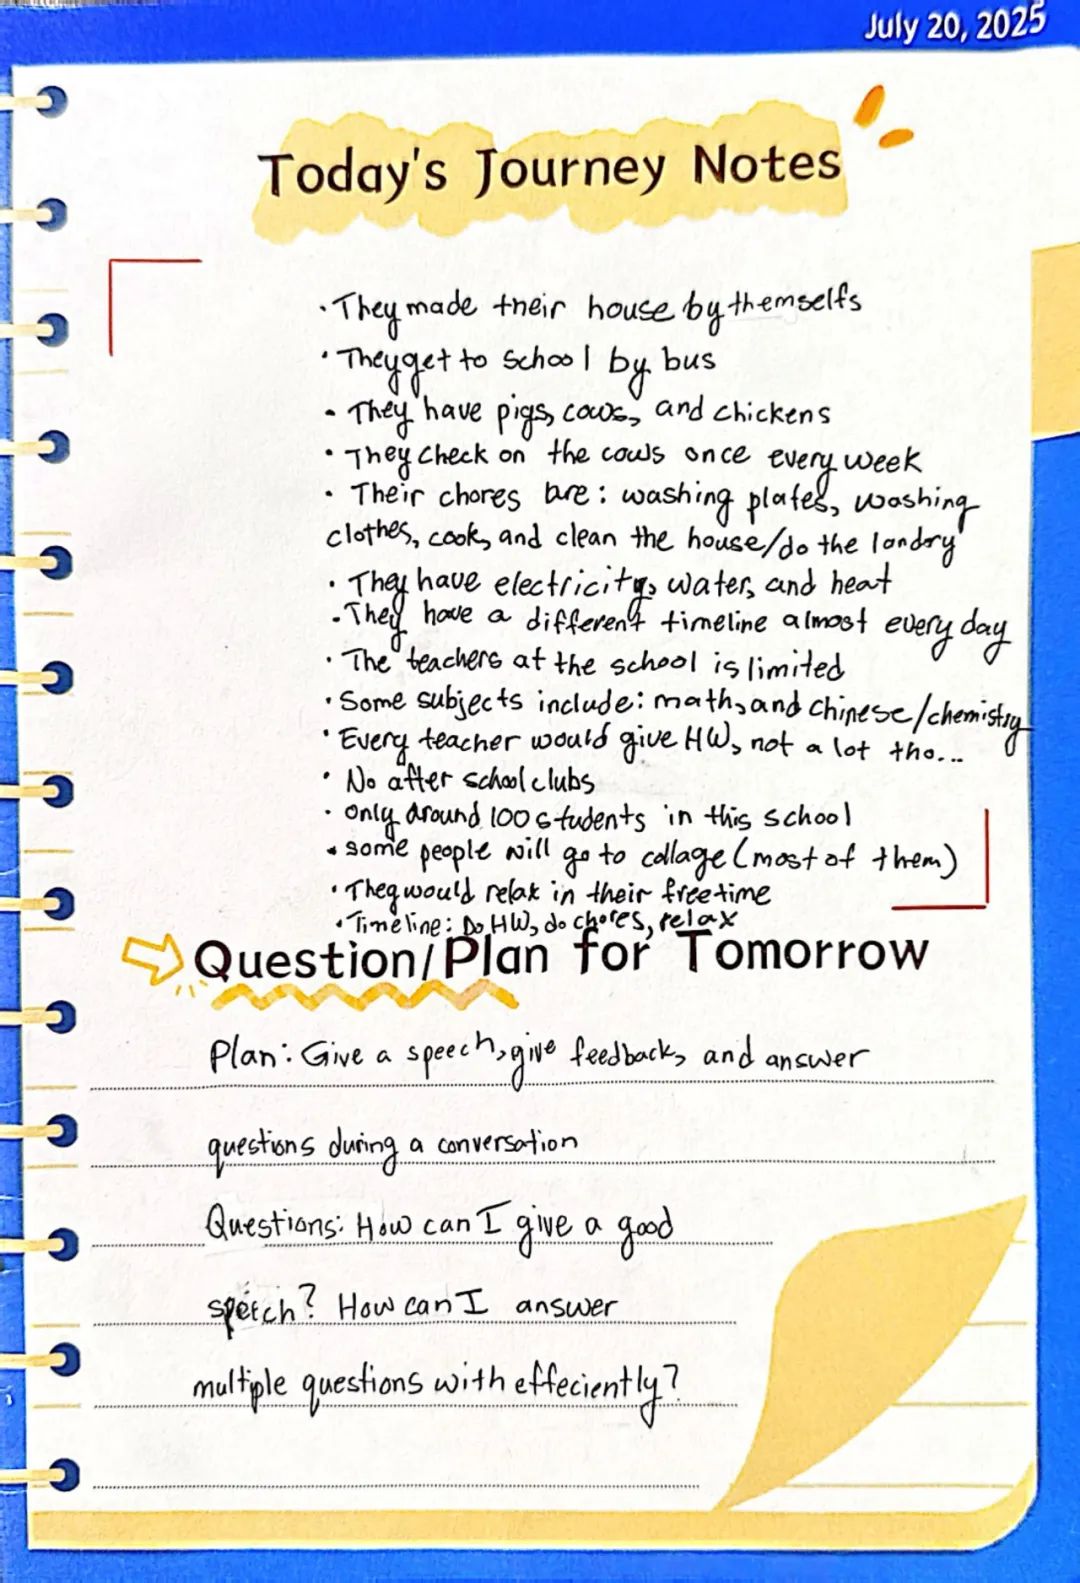 July 20, 2025
Today's Journey Notes
· They made their house by themselfs
· They get to school by bus
· They have pigs, cows, and chickens
· They check on the cows once every week
· Their chores are: washing plates, washing
clothes, cook, and clean the house/do the landry
· They have electricity, water, and heat
· They have a different timeline almost every day
· The teachers at the school is limited
· Some subjects include: math, and chinese/chemistry
· Every teacher would give HW, not a lot tho...
· No after school clubs
· only around 100 students in this school
· some people will go to collage (most of them)
· They would relax in their freetime
· Timeline: Do HW, do chores, relax
Question/Plan for Tomorrow
Plan: Give a speech, give feedback, and answer
questions during a conversation
Questions: How can I give a good
speech? How can I answer
multiple questions with effeciently?